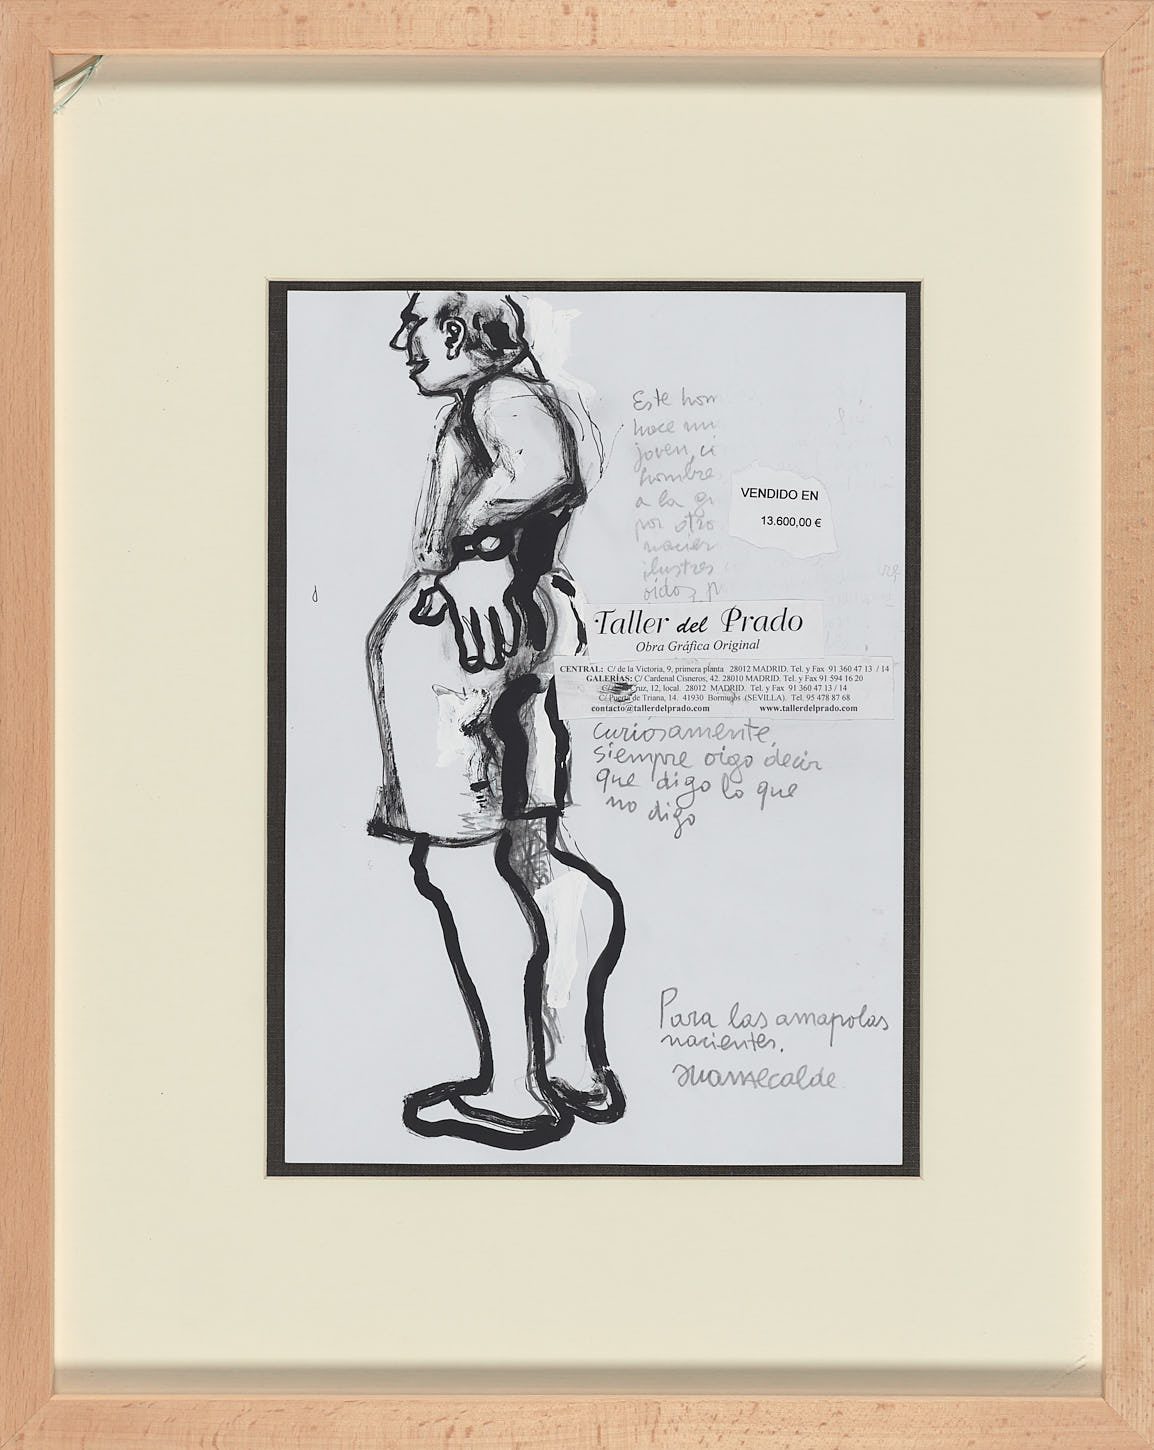 Este hom
hace mu
joven, ci
hombre
a la gr
por otro
nacier
ilustres
oído, p
VENDIDO EN
13.600,00 €
Taller del Prado
Obra Gráfica Original
CENTRAL: C/ de la Victoria, 9, primera planta 28012 MADRID. Tel. y Fax 91 360 47 13 / 14
GALERÍAS: C/ Cardenal Cisneros, 42. 28010 MADRID. Tel. y Fax 91 594 16 20
Cruz, 12, local. 28012 MADRID. Tel. y Fax 91 360 47 13 / 14
C/ Puerta de Triana, 14. 41930 Bormujos (SEVILLA). Tel. 95 478 87 68
contacto@tallerdelprado.com www.tallerdelprado.com
curiosamente,
siempre oigo decir
que digo lo que
no digo
Para las amapolas
nacientes.
JuanAlcalde